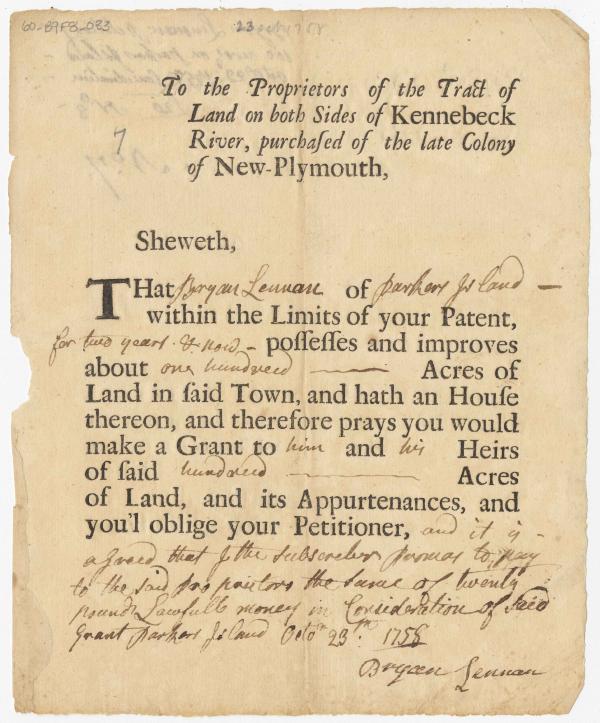 60-B9F8-083
23 Oct 1758
7
To the Proprietors of the Tract of
Land on both Sides of Kennebeck
River, purchaſed of the late Colony
of New-Plymouth,
Sheweth,
THat Bryan Lennan of Parkers Island —
within the Limits of your Patent,
for two years & now – poſſeſſes and improves
about one hundreed —— Acres of
Land in ſaid Town, and hath an Houſe
thereon, and therefore prays you would
make a Grant to him and his Heirs
of ſaid hundreed —— Acres
of Land, and its Appurtenances, and
you'l oblige your Petitioner, and it is –
agreed that I the subscriber promas to pay
to the said Proprietors the same of twenty
pounds Lawfull money in Consideration of said
Grant Parkers Island Octor 23th 1758
Bryan Lennan